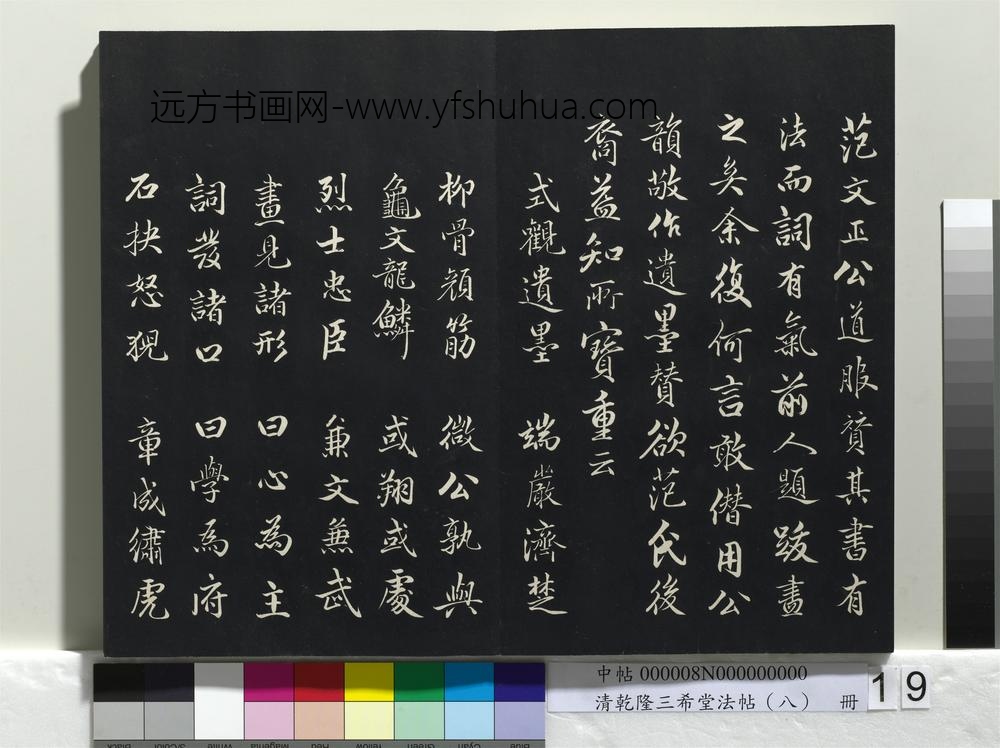 远方书画网-www.yfshuhua.com
范文正公道服賛其書有
法而詞有氣前人題跋盡
之矣余復何言敢僣用公
韻敬作遺墨賛欲范氏後
裔益知所寶重云
式觀遺墨 端嚴濟楚
柳骨顔筋 微公孰與
龜文龍鱗 或翔或處
烈士忠臣 兼文兼武
畫見諸形 曰心為主
詞發諸口 曰學為府
石抉怒猊 章成繡虎
中帖 000008N000000000
清乾隆三希堂法帖（八） 冊 19
Black 3/Color White Magenta Red Yellow Green Cyan Blue